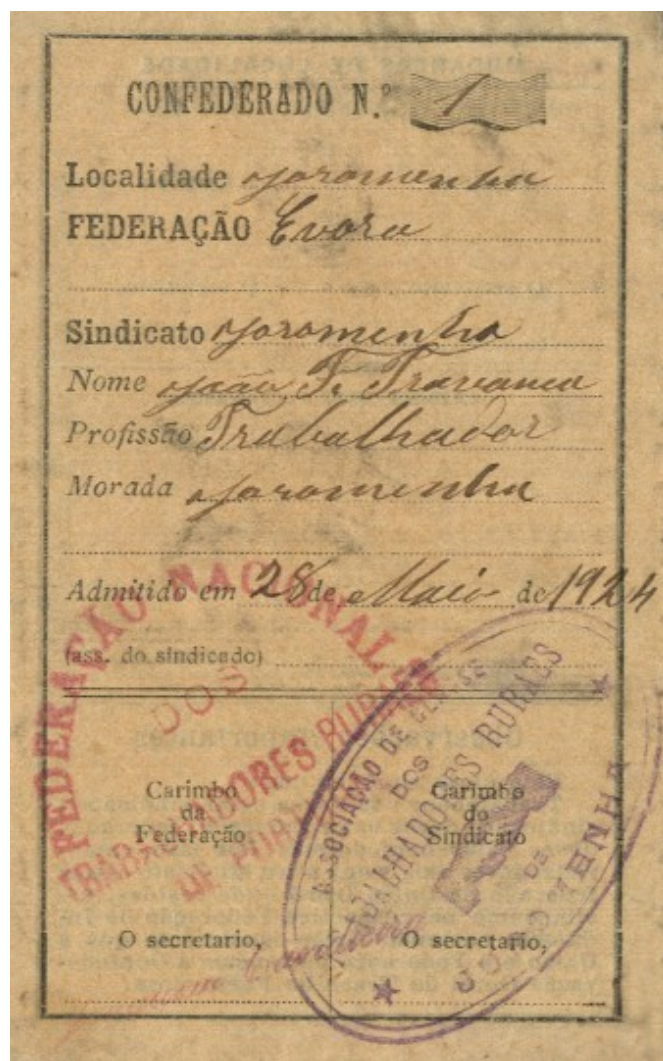 CONFEDERADO N.º 1
Localidade Joromenha
FEDERAÇÃO Evora
Sindicato Joromenha
Nome João F. Travanca
Profissão Trabalhador
Morada Joromenha
Admitido em 28 de Maio de 1924
(ass. do sindicado)
FEDERAÇÃO NACIONAL
DOS
TRABALHADORES RURAES
DE PORTUGAL
ASSOCIAÇÃO DE CLASSE
DOS
TRABALHADORES RURAES
DE
JUROMENHA
Carimbo
da
Federação
Carimbo
do
Sindicato
O secretario,
O secretario,